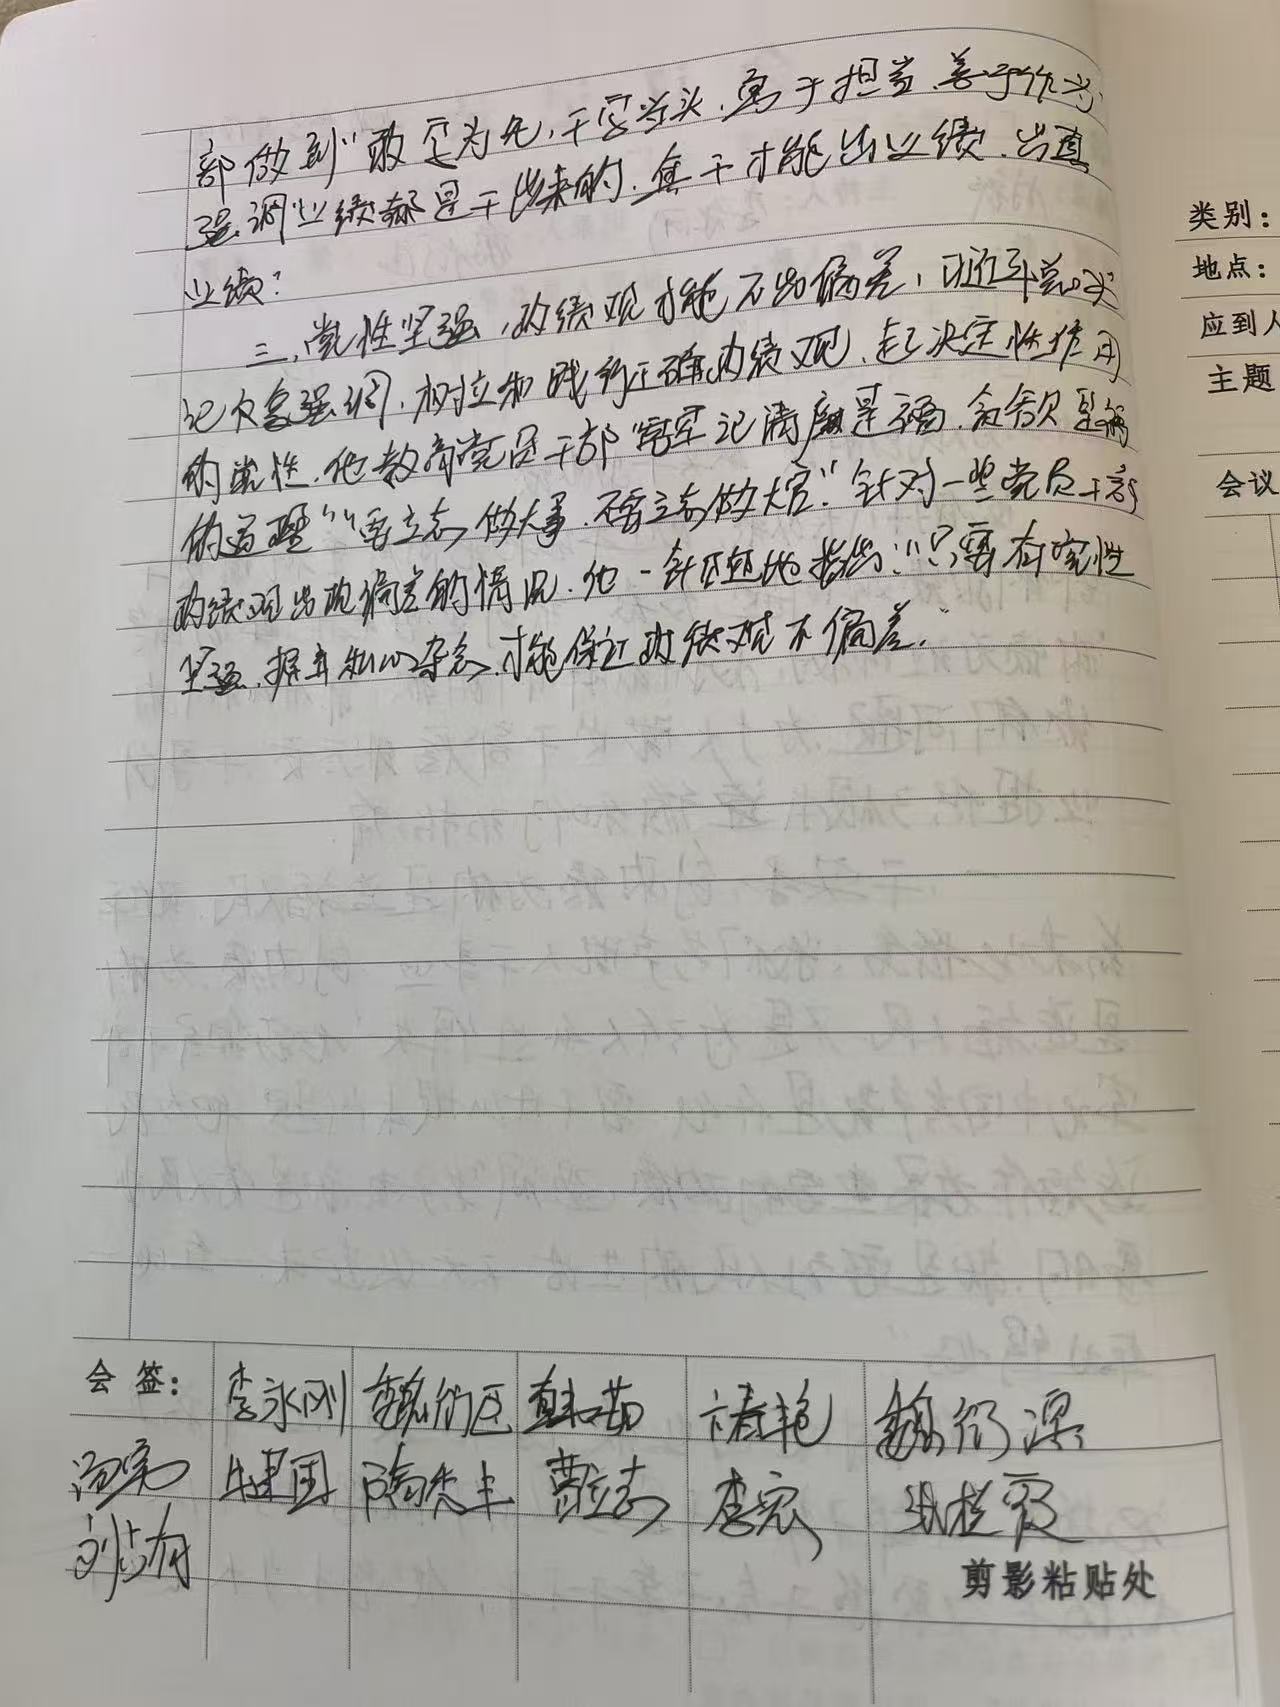 部做到“敢字为先,干字当头,勇于担当,善于作为,
强调“业绩都是干出来的,真干才能出业绩、出真
业绩”
三、党性坚强,政绩观才能不出偏差,习近平总书
记反复强调,树立和践行正确政绩观,起决定性作用
的党性.他教育党员干部“要牢记清廉是福、贪欲是祸
的道理”“要立志做大事,不要立志做大官”.针对一些党员干部
政绩观出现偏差的情况,他一针见血地指出:“只有党性
坚强、摒弃私心杂念,才能保证政绩观不偏差.”
类别:
地点:
应到人
主题
会议
会 签:
李永刚 曹立志 李宏
剪影粘贴处